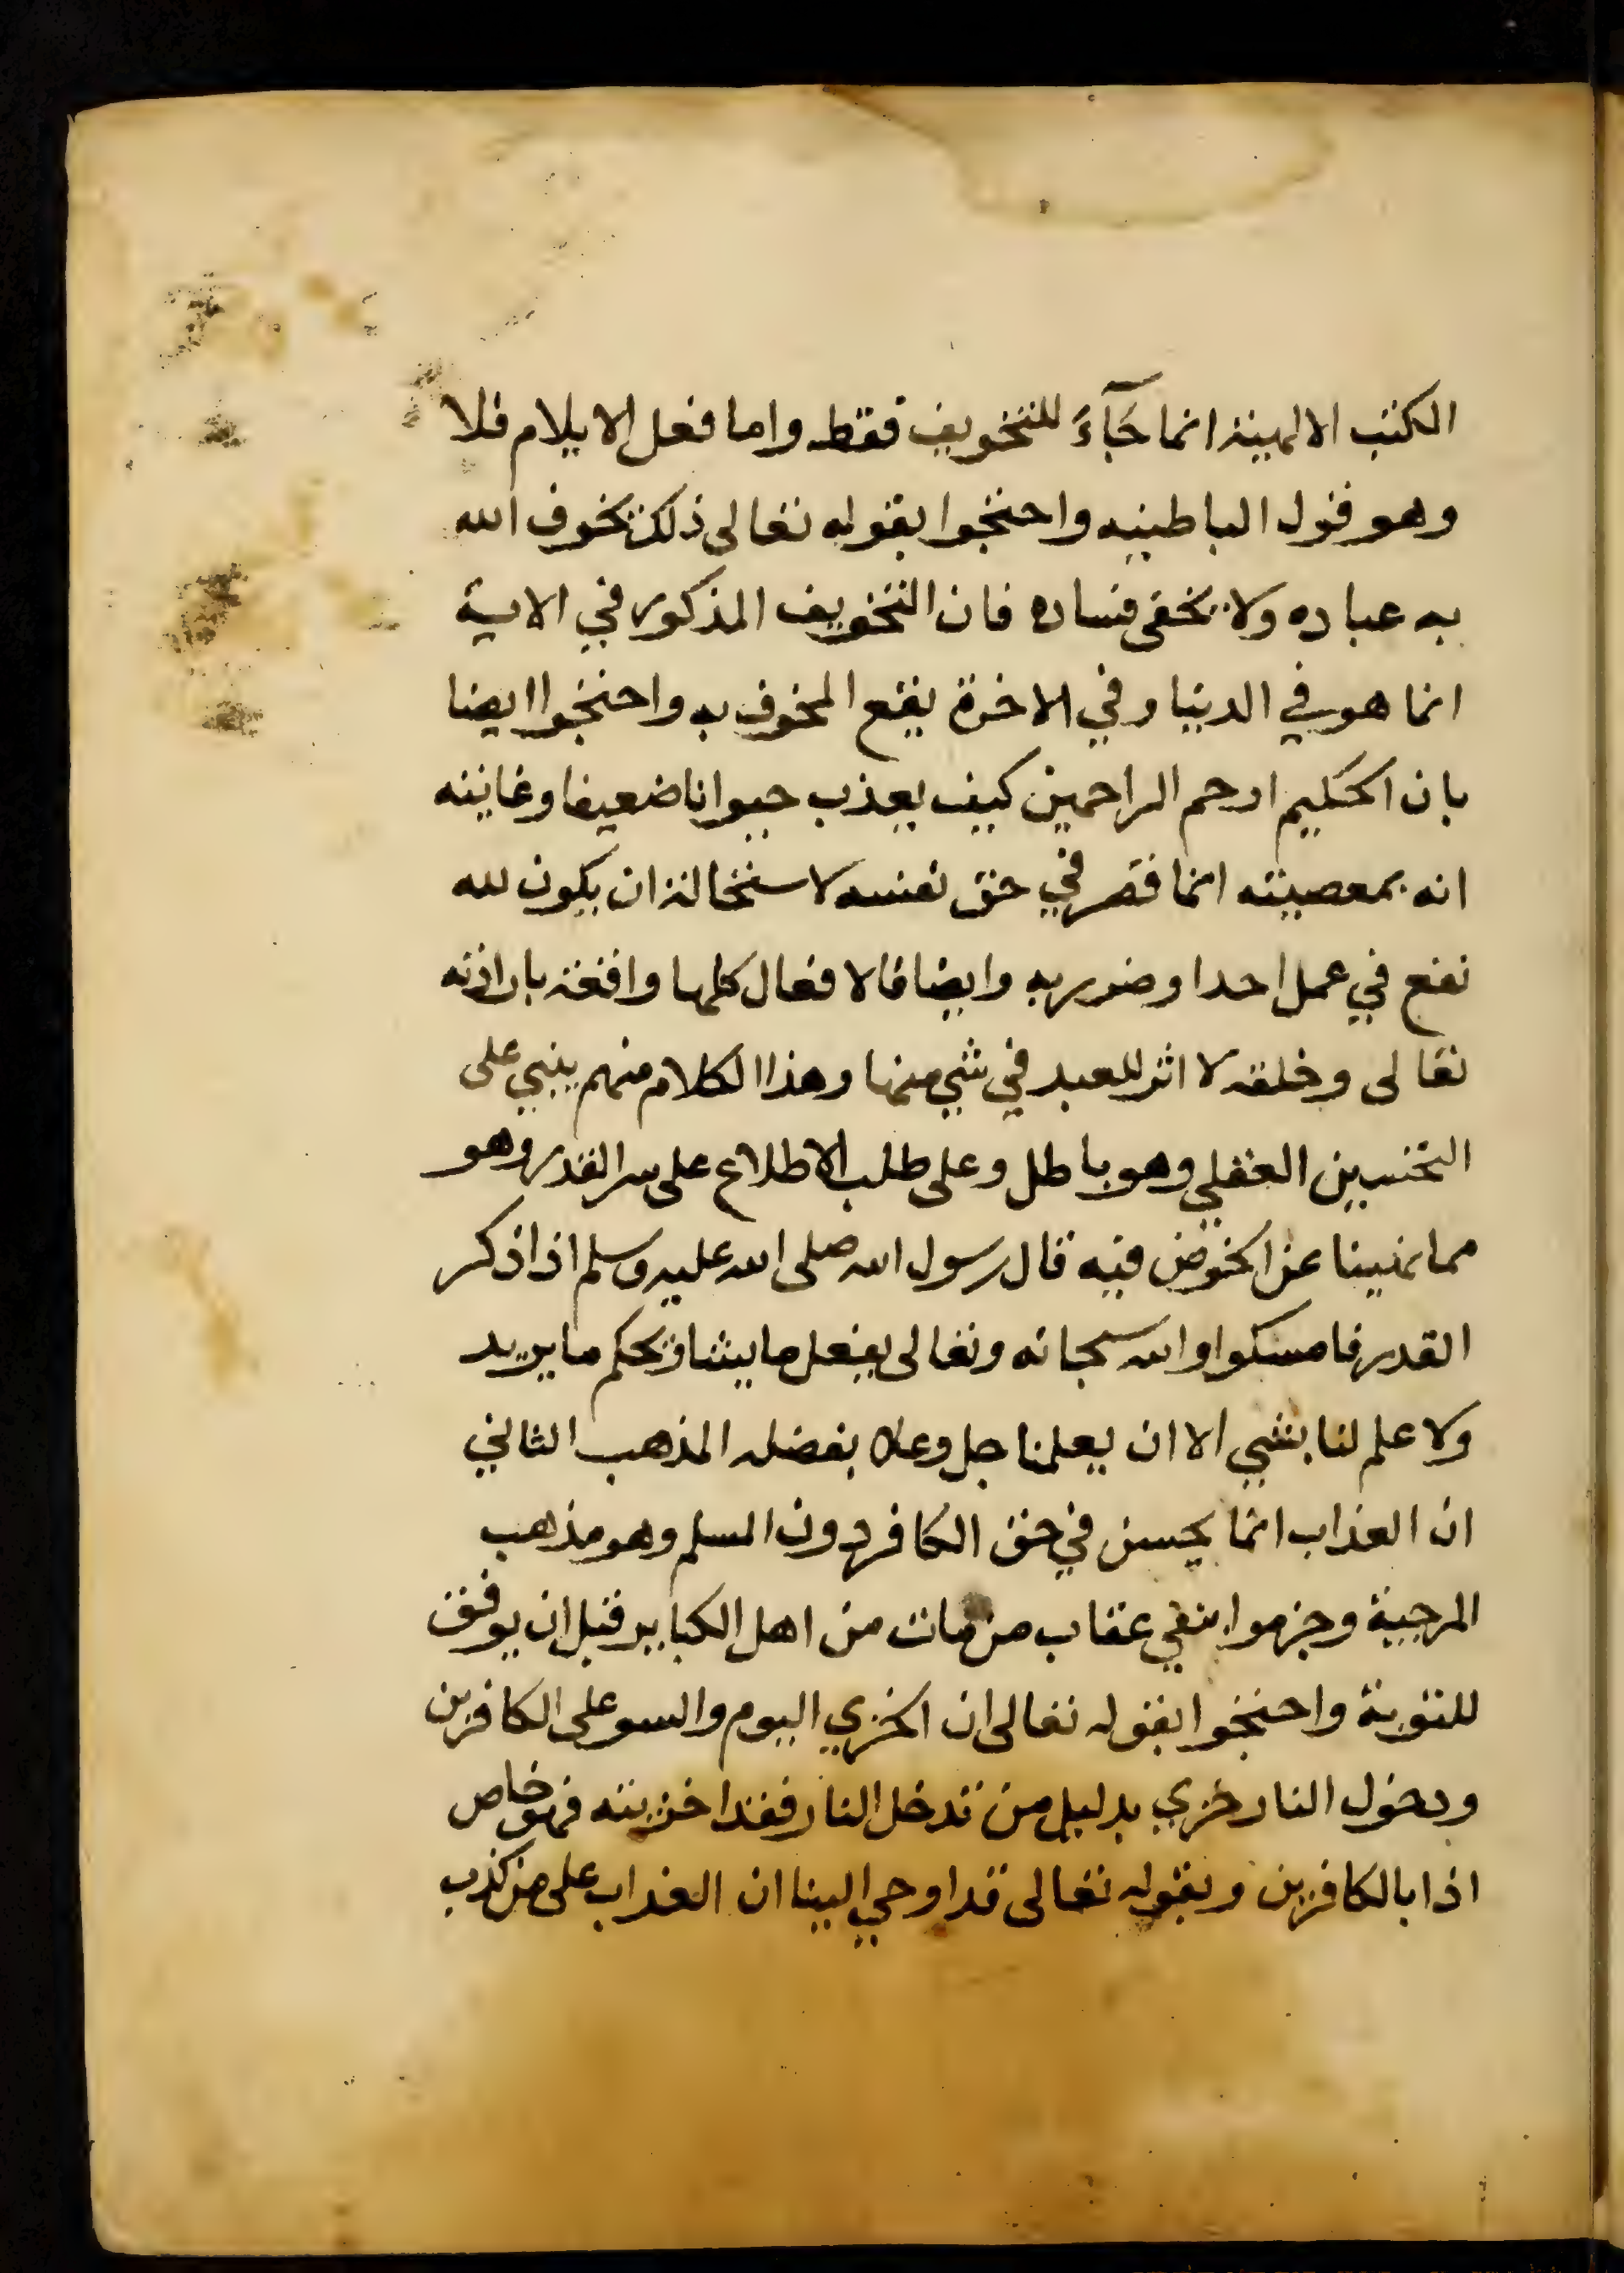 الكتب الالهية انما جَآءَ للتخويف فقط واما فعل الايلام فلا
وهو قول الباطنيه واحتجوا بقوله تعالى ذلك يخوف الله
به عباده ولا يخفى فساده فان التخويف المذكور في الاية
انما هو في الدنيا وفي الاخرة يقع المخوف به واحتجوا ايضا
بان الحكيم ارحم الراحمين كيف يعذب حيوانا ضعيفا وغايته
انه بمعصيته انما قصر في حق نفسه لاستحالة ان يكون لله
نفع في عمل احد او ضرر به وايضا فالافعال كلها واقعة بارادته
تعالى وخلقه لا اثر للعبد في شي منها وهذا الكلام منهم ينبي على
التحسين العقلي وهو باطل وعلى طلب الاطلاع على سر القدر وهو
مما نهينا عن الخوض فيه قال رسول الله صلى الله عليه وسلم اذا ذكر
القدر فامسكوا والله سبحانه وتعالى يفعل ما يشا ويحكم ما يريد
ولا علم لنا بشي الا ان يعلمنا جل وعلا بفضله المذهب الثاني
ان العذاب انما يحسن في حق الكافر دون المسلم وهو مذهب
المرجية وجزموا بنفي عقاب من مات من اهل الكباير قبل ان يوفق
للتوبة واحتجوا بقوله تعالى ان الخزي اليوم والسو على الكافرين
ودخول النار خزي بدليل من تدخل النار فقد اخزيته فهو خاص
اذا بالكافرين وبقوله تعالى قد اوحي الينا ان العذاب على من كذب